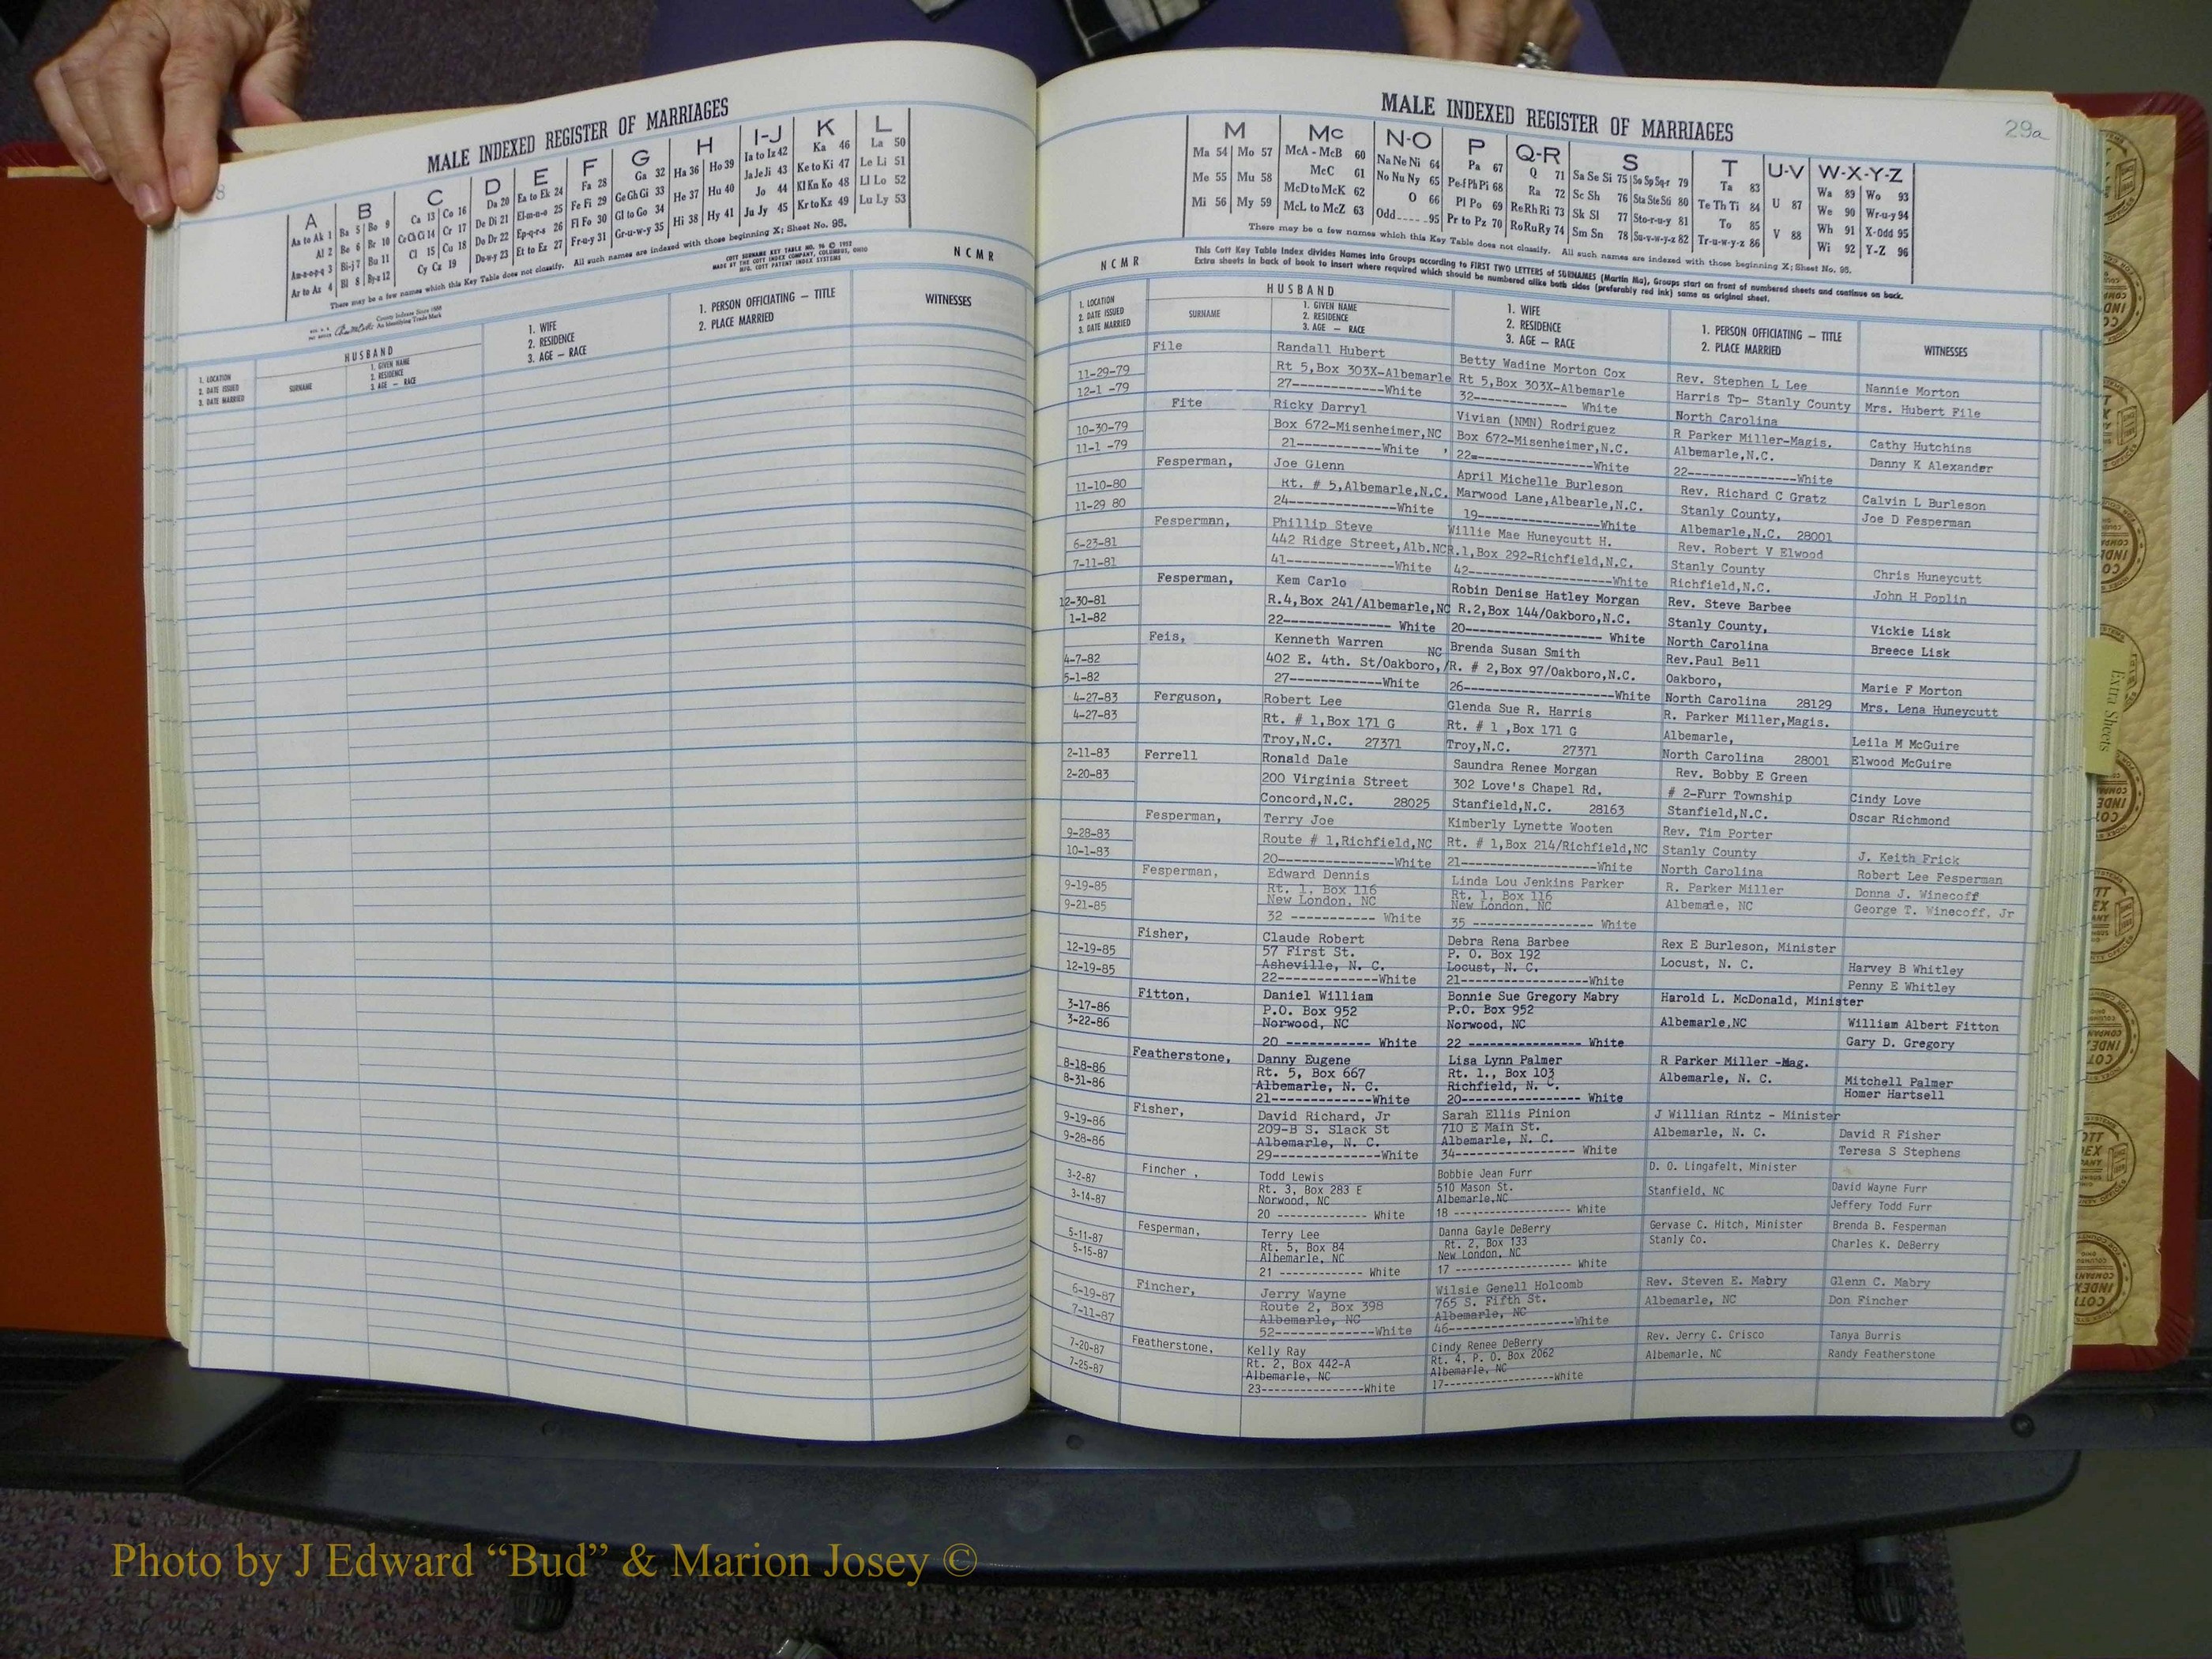 MALE INDEXED REGISTER OF MARRIAGES
A B C D E F G H I-J K L
Aa to Ak 1 Ba 5 Bo 9 Ca 13 Co 16 Da 20 Ea to Ek 24 Fa 28 Ga 32 Ha 36 Ho 39 Ia to Iz 42 Ka 46 La 50
Al 2 Be 6 Br 10 Ce Ch Ci 14 Cr 17 De Di 21 El-m-n-o 25 Fe Fi 29 Ge Gh Gi 33 He 37 Hu 40 Ja Je Ji 43 Ke to Ki 47 Le Li 51
Am-n-o-p-q 3 Bi-j 7 Bu 11 Cl 15 Cu 18 Do Dr 22 Ep-q-r-s 26 Fl Fo 30 Gl to Go 34 Hi 38 Hy 41 Jo 44 Kl Kn Ko 48 Ll Lo 52
Ar to Az 4 Bl 8 By-z 12 Cy Cz 19 Du-w-y 23 Et to Ez 27 Fr-u-y 31 Gr-u-w-y 35 Ju Jy 45 Kr to Kz 49 Lu Ly 53
There may be a few names which this Key Table does not classify. All such names are indexed with those beginning X; Sheet No. 95.
County Indexes Since 1888
An Identifying Trade Mark
COTT SURNAME KEY TABLE NO. 96 © 1952
MADE BY THE COTT INDEX COMPANY, COLUMBUS, OHIO
MFG. COTT PATENT INDEX SYSTEMS
NCMR
1. LOCATION
2. DATE ISSUED
3. DATE MARRIED
HUSBAND
SURNAME
1. GIVEN NAME
2. RESIDENCE
3. AGE — RACE
1. WIFE
2. RESIDENCE
3. AGE — RACE
1. PERSON OFFICIATING — TITLE
2. PLACE MARRIED
WITNESSES
29a
MALE INDEXED REGISTER OF MARRIAGES
M Mc N-O P Q-R S T U-V W-X-Y-Z
Ma 54 Mo 57 McA - McB 60 Na Ne Ni 64 Pa 67 Q 71 Sa Se Si 75 So Sp Sq-r 79 Ta 83 U 87 Wa 89 Wo 93
Me 55 Mu 58 McC 61 No Nu Ny 65 Pe-f Ph Pi 68 Ra 72 Sc Sh 76 Sta Ste Sti 80 Te Th Ti 84 V 88 We 90 Wr-u-y 94
Mi 56 My 59 McD to McK 62 O 66 Pl Po 69 Re Rh Ri 73 Sk Sl 77 Sto-r-u-y 81 To 85 Wh 91 X-Odd 95
McL to McZ 63 Odd 95 Pr to Pz 70 Ro Ru Ry 74 Sm Sn 78 Su-v-w-y-z 82 Tr-u-w-y-z 86 Wi 92 Y-Z 96
There may be a few names which this Key Table does not classify. All such names are indexed with those beginning X; Sheet No. 95.
This Cott Key Table Index divides Names into Groups according to FIRST TWO LETTERS of SURNAMES (Martin Ma), Groups start on front of numbered sheets and continue on back.
Extra sheets in back of book to insert where required which should be numbered alike both sides (preferably red ink) same as original sheet.
NCMR
1. LOCATION
2. DATE ISSUED
3. DATE MARRIED
HUSBAND
SURNAME
1. GIVEN NAME
2. RESIDENCE
3. AGE — RACE
1. WIFE
2. RESIDENCE
3. AGE — RACE
1. PERSON OFFICIATING — TITLE
2. PLACE MARRIED
WITNESSES
File Randall Hubert Betty Wadine Morton Cox Rev. Stephen L Lee Nannie Morton
11-29-79 Rt 5,Box 303X-Albemarle Rt 5,Box 303X-Albemarle Harris Tp- Stanly County Mrs. Hubert File
12-1 -79 27------------White 32------------ White North Carolina
Fite Ricky Darryl Vivian (NMN) Rodriguez R Parker Miller-Magis. Cathy Hutchins
10-30-79 Box 672-Misenheimer,NC Box 672-Misenheimer,N.C. Albemarle,N.C. Danny K Alexander
11-1 -79 21------------White 22-----------------White 22----------------White
Fesperman, Joe Glenn April Michelle Burleson Rev. Richard C Gratz Calvin L Burleson
11-10-80 Rt. # 5,Albemarle,N.C. Marwood Lane,Albearle,N.C. Stanly County, Joe D Fesperman
11-29 80 24---------------White 19-----------------White Albemarle,N.C. 28001
Fesperman, Phillip Steve Willie Mae Huneycutt H. Rev. Robert V Elwood
6-23-81 442 Ridge Street,Alb.NC R.1,Box 292-Richfield,N.C. Stanly County Chris Huneycutt
7-11-81 41--------------White 42--------------------White Richfield,N.C. John H Poplin
Fesperman, Kem Carlo Robin Denise Hatley Morgan Rev. Steve Barbee
12-30-81 R.4,Box 241/Albemarle,NC R.2,Box 144/Oakboro,N.C. Stanly County, Vickie Lisk
1-1-82 22-------------- White 20------------------- White North Carolina Breece Lisk
Feis, Kenneth Warren NC Brenda Susan Smith Rev.Paul Bell
4-7-82 402 E. 4th. St/Oakboro,/ R. # 2,Box 97/Oakboro,N.C. Oakboro, Marie F Morton
5-1-82 27-------------White 26---------------------White North Carolina 28129 Mrs. Lena Huneycutt
4-27-83 Ferguson, Robert Lee Glenda Sue R. Harris R. Parker Miller,Magis.
4-27-83 Rt. # 1,Box 171 G Rt. # 1 ,Box 171 G Albemarle, Leila M McGuire
Troy,N.C. 27371 Troy,N.C. 27371 North Carolina 28001 Elwood McGuire
2-11-83 Ferrell Ronald Dale Saundra Renee Morgan Rev. Bobby E Green
2-20-83 200 Virginia Street 302 Love's Chapel Rd. # 2-Furr Township Cindy Love
Concord,N.C. 28025 Stanfield,N.C. 28163 Stanfield,N.C. Oscar Richmond
Fesperman, Terry Joe Kimberly Lynette Wooten Rev. Tim Porter
9-28-83 Route # 1,Richfield,NC Rt. # 1,Box 214/Richfield,NC Stanly County J. Keith Frick
10-1-83 20----------------White 21-------------------White North Carolina Robert Lee Fesperman
Fesperman, Edward Dennis Linda Lou Jenkins Parker R. Parker Miller Donna J. Winecoff
9-19-85 Rt. 1, Box 116 Rt. 1, Box 116 Albemale, NC George T. Winecoff, Jr
9-21-85 New London, NC New London, NC
32 ----------- White 35 ---------------- White
Fisher, Claude Robert Debra Rena Barbee Rex E Burleson, Minister
12-19-85 57 First St. P. O. Box 192 Locust, N. C. Harvey B Whitley
12-19-85 Asheville, N. C. Locust, N. C. Penny E Whitley
22--------------White 21------------------White
Fitton, Daniel William Bonnie Sue Gregory Mabry Harold L. McDonald, Minister
3-17-86 P.O. Box 952 P.O. Box 952 Albemarle,NC William Albert Fitton
3-22-86 Norwood, NC Norwood, NC Gary D. Gregory
20 ----------- White 22 --------------- White
Featherstone, Danny Eugene Lisa Lynn Palmer R Parker Miller -Mag.
8-18-86 Rt. 5, Box 667 Rt. 1., Box 103 Albemarle, N. C. Mitchell Palmer
8-31-86 Albemarle, N. C. Richfield, N. C. Homer Hartsell
21--------------White 20---------------- White
Fisher, David Richard, Jr Sarah Ellis Pinion J Willian Rintz - Minister
9-19-86 209-B S. Slack St 710 E Main St. Albemarle, N. C. David R Fisher
9-28-86 Albemarle, N. C. Albemarle, N. C. Teresa S Stephens
29---------------White 34---------------- White
Fincher , Todd Lewis Bobbie Jean Furr D. O. Lingafelt, Minister
3-2-87 Rt. 3, Box 283 E 510 Mason St. Stanfield, NC David Wayne Furr
3-14-87 Norwood, NC Albemarle,NC Jeffery Todd Furr
20 -------------- White 18 ------------------ White
Fesperman, Terry Lee Danna Gayle DeBerry Gervase C. Hitch, Minister Brenda B. Fesperman
5-11-87 Rt. 5, Box 84 Rt. 2, Box 133 Stanly Co. Charles K. DeBerry
5-15-87 Albemarle, NC New London, NC
21 ------------- White 17 ------------------ White
Fincher, Jerry Wayne Wilsie Genell Holcomb Rev. Steven E. Mabry Glenn C. Mabry
6-19-87 Route 2, Box 398 765 S. Fifth St. Albemarle, NC Don Fincher
7-11-87 Albemarle, NC Albemarle, NC
52---------------White 46------------------White
Featherstone, Kelly Ray Cindy Renee DeBerry Rev. Jerry C. Crisco Tanya Burris
7-20-87 Rt. 2, Box 442-A Rt. 4, P. O. Box 2062 Albemarle, NC Randy Featherstone
7-25-87 Albemarle, NC Albemarle, NC
23----------------White 17-----------------White
Extra Sheets
Photo by J Edward “Bud” & Marion Josey ©